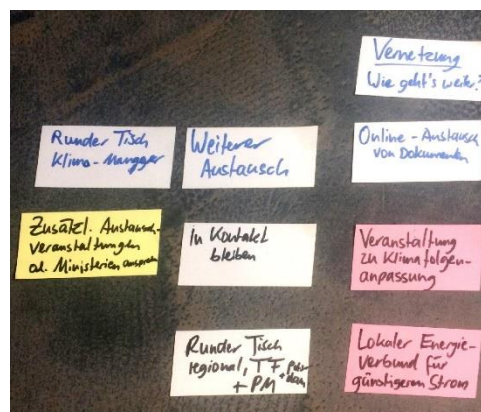 Vernetzung
Wie geht's weiter?
Runder Tisch
Klima-Manager
Weiterer
Austausch
Online-Austausch
von Dokumenten
Zusätzl. Austausch-
veranstaltungen
od. Ministerien
In Kontakt
bleiben
Veranstaltung
zu Klimafolgen-
anpassung
Runder Tisch
regional, TF
+ PM
Lokaler Energie-
verbund für
günstigeren Strom